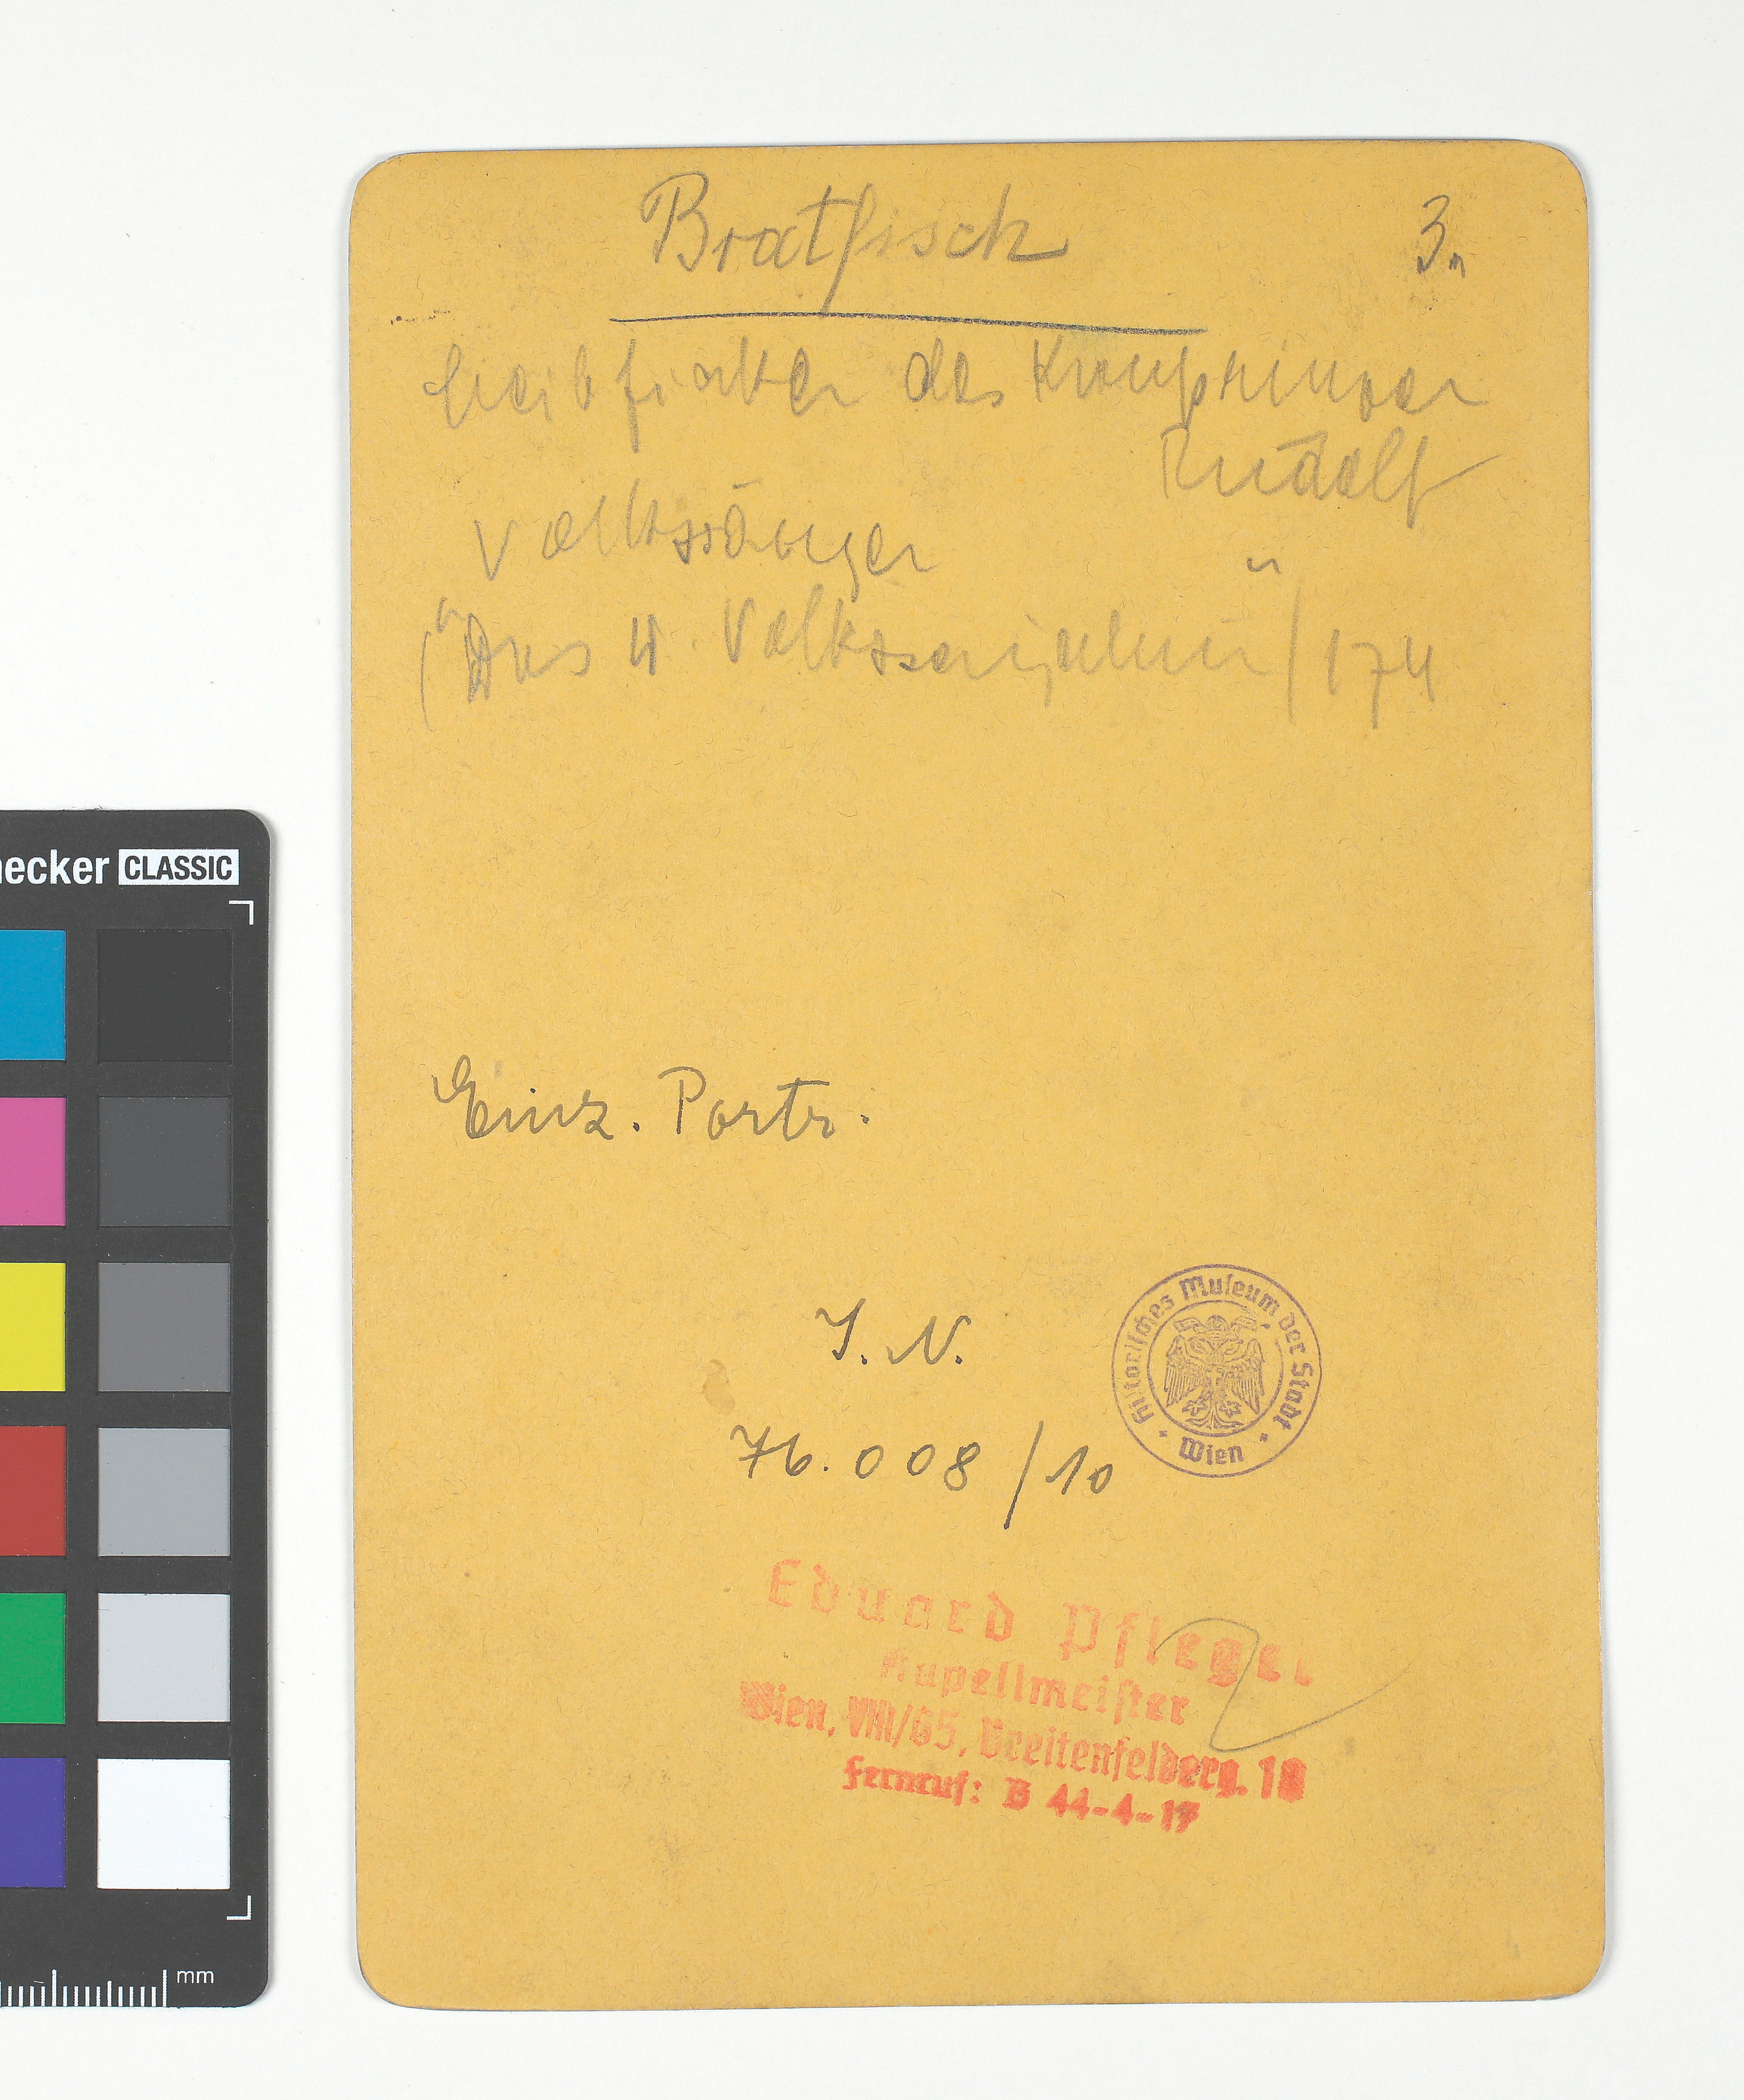 Bratfisch
3.
Leibfiaker des Kronprinzen
Rudolf
Volkssänger
("Das W. Volkssängertum") 174
Einz. Portr.
I. N.
76.008/10
Historisches Museum der Stadt Wien
Eduard Pfleger
Kapellmeister
Wien, VIII/65, Breitenfelderg. 18
Fernruf: B 44-4-17
necker CLASSIC
mm